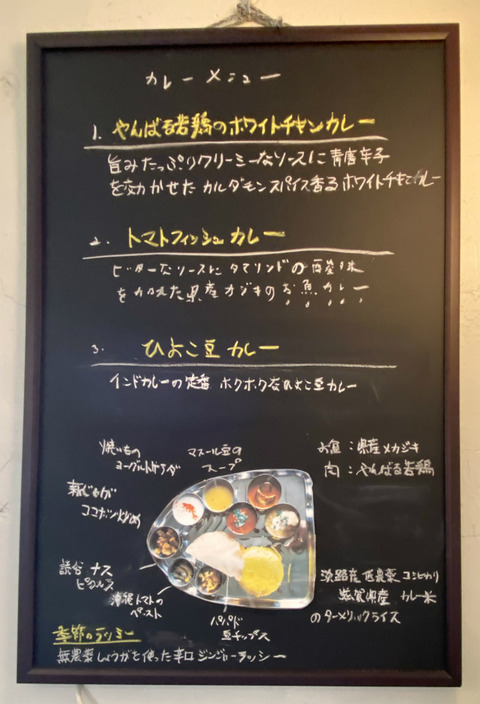 カレーメニュー
1. やんばる若鶏のホワイトチキンカレー
旨みたっぷりクリーミーなソースに青唐辛子
を効かせたカルダモンスパイス香るホワイトチキンカレー
2. トマトフィッシュカレー
ビターなソースにタマリンドの酸味
をかえた県産カジキのお魚カレー
3. ひよこ豆カレー
インドカレーの定番 ホクホクなひよこ豆カレー
焼いもの
ヨーグルトサラダ
マスール豆の
スープ
お魚:県産メカジキ
肉:やんばる若鶏
ココナッツ炒め
読谷ナス
ピクルス
沖縄トマトの
ペースト
パパド
豆チップス
淡路産低農薬コシヒカリ
滋賀県産 カレー米
のターメリックライス
季節のラッシー
無農薬しょうがを使った辛口ジンジャーラッシー